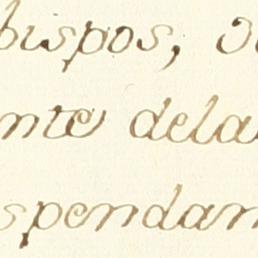 bispos,
nte dela
spendam